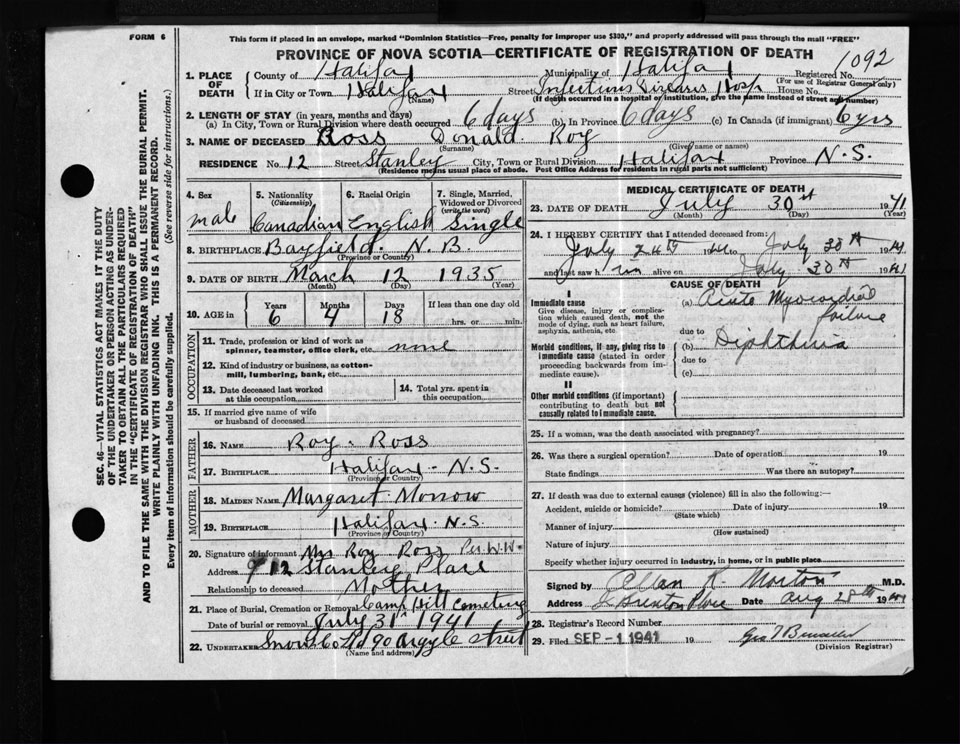 FORM 6
This form if placed in an envelope, marked "Dominion Statistics—Free, penalty for improper use $300," and properly addressed will pass through the mail "FREE"
PROVINCE OF NOVA SCOTIA—CERTIFICATE OF REGISTRATION OF DEATH
1092
1. PLACE OF DEATH County of Halifax Municipality of Halifax Registered No.
(For use of Registrar General only)
If in City or Town Halifax Street Infectious Diseases Hosp House No.
(Name) (If death occurred in a hospital or institution, give the name instead of street and number)
2. LENGTH OF STAY (in years, months and days)
(a) In City, Town or Rural Division where death occurred 6 days (b) In Province 6 days (c) In Canada (if immigrant) 6 yrs
3. NAME OF DECEASED Ross Donald Roy
(Surname) (Given name or names)
RESIDENCE No. 12 Street Stanley City, Town or Rural Division Halifax Province N.S.
(Residence means usual place of abode. Post Office Address for residents in rural parts not sufficient)
4. Sex male
5. Nationality (Citizenship) Canadian
6. Racial Origin English
7. Single, Married, Widowed or Divorced (write the word) Single
8. BIRTHPLACE Bayfield. N.B.
(Province or Country)
9. DATE OF BIRTH March 12 1935
(Month) (Day) (Year)
10. AGE in Years 6 Months 4 Days 18 If less than one day old
hrs. or min.
OCCUPATION
11. Trade, profession or kind of work as spinner, teamster, office clerk, etc. none
12. Kind of industry or business, as cotton-mill, lumbering, bank, etc.
13. Date deceased last worked at this occupation
14. Total yrs. spent in this occupation
15. If married give name of wife or husband of deceased
FATHER
16. NAME Roy. Ross
17. BIRTHPLACE Halifax - N.S.
(Province or Country)
MOTHER
18. MAIDEN NAME Margaret. Morrow
19. BIRTHPLACE Halifax - N.S.
(Province or Country)
20. Signature of informant Mrs Roy Ross Per. W.W.
Address 12 Stanley Place
Relationship to deceased Mother
21. Place of Burial, Cremation or Removal Camp Hill Cemetery
Date of burial or removal July 31st 1941
22. UNDERTAKER Snow & Co Ltd 90 Argyle Street
(Name and address)
MEDICAL CERTIFICATE OF DEATH
23. DATE OF DEATH July 30th 1941
(Month) (Day) (Year)
24. I HEREBY CERTIFY that I attended deceased from:
July 24th 1941 to July 30th 1941
and last saw him alive on July 30th 1941
CAUSE OF DEATH
I
Immediate cause
Give disease, injury or complication which caused death, not the mode of dying, such as heart failure, asphyxia, asthenia, etc
(a) Acute Myocardial failure
due to
Morbid conditions, if any, giving rise to immediate cause (stated in order proceeding backwards from immediate cause).
(b) Diphtheria
due to
(c)
II
Other morbid conditions (if important) contributing to death but not causally related to immediate cause.
25. If a woman, was the death associated with pregnancy?
26. Was there a surgical operation? Date of operation 19
State findings Was there an autopsy?
27. If death was due to external causes (violence) fill in also the following:—
Accident, suicide or homicide? Date of injury 19
(State which)
Manner of injury
(How sustained)
Nature of injury
Specify whether injury occurred in industry, in home, or in public place
Signed by Allan R. Morton M.D.
Address Date Aug 28th 1941
28. Registrar's Record Number
29. Filed SEP - 1 1941 19
(Division Registrar)
SEC. 46—VITAL STATISTICS ACT MAKES IT THE DUTY
OF THE UNDERTAKER OR PERSON ACTING AS UNDER-
TAKER TO OBTAIN ALL THE PARTICULARS REQUIRED
IN THE "CERTIFICATE OF REGISTRATION OF DEATH"
AND TO FILE THE SAME WITH THE DIVISION REGISTRAR WHO SHALL ISSUE THE BURIAL PERMIT.
WRITE PLAINLY WITH UNFADING INK. THIS IS A PERMANENT RECORD.
Every item of information should be carefully supplied. (See reverse side for instructions.)